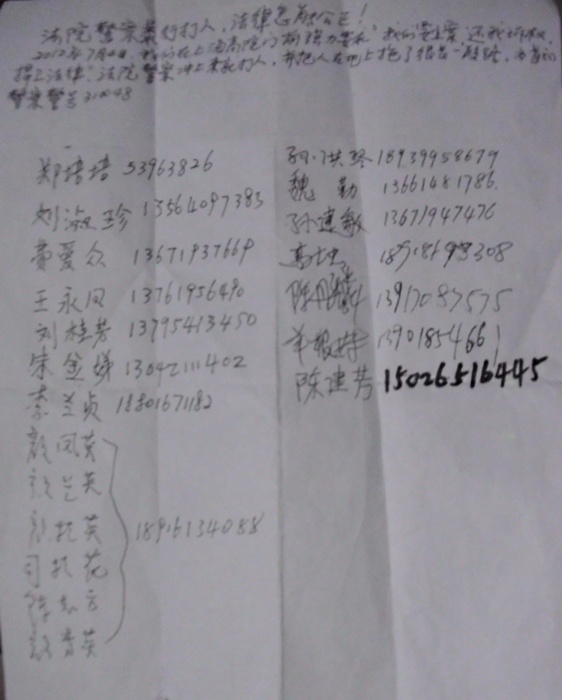 法院警察暴行打人，法律怎能公正！
2012年7月4日，我们在上海高院门前强力要求：我们要立案 还我
捍卫法律，法院警察冲上来就打人，并把人在地上拖了很长一段路，为首的
警察警号310048
郑培培 53963826
刘淑珍 13564097383
费爱众 13671937669
王永凤 13761956490
刘桂芳 13795413450
朱金娣 13042111402
秦兰贞 18801671182
颜凤英
颜兰英
英 18916134088
司 花
陈
英
孙洪琴 18939958679
魏勤 13661481786
孙建敏 13671947476
18918698308
陈 13917087575
13901854661
陈建芳 15026516445